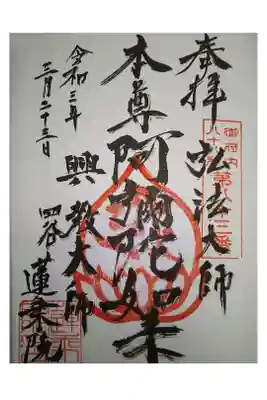 奉拝 弘法大師
御府内
八十八ヶ所
第八十三番
本尊阿彌陀如来
興教大師
四谷 蓮乗院
令和三年
三月二十三日